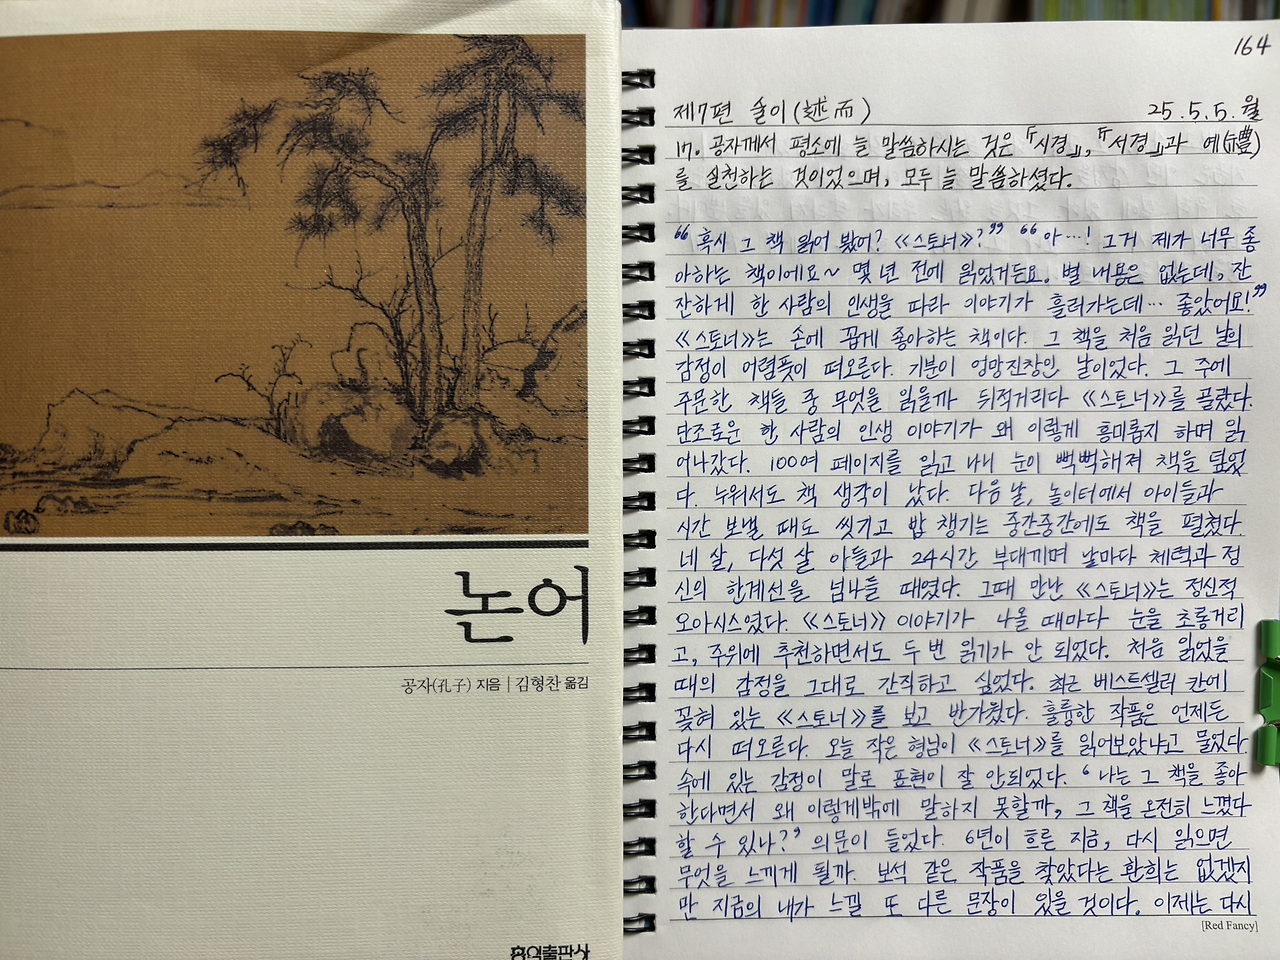 논어
공자(孔子) 지음 | 김형찬 옮김
홍익출판사
164
제7편 술이(述而) 25.5.5.월
17. 공자께서 평소에 늘 말씀하시는 것은 『시경』, 『서경』과 예(禮)
를 실천하는 것이었으며, 모두 늘 말씀하셨다.
"혹시 그 책 읽어 봤어? 《스토너》?" "아…! 그거 제가 너무 좋
아하는 책이에요~ 몇 년 전에 읽었거든요. 별 내용은 없는데, 잔
잔하게 한 사람의 인생을 따라 이야기가 흘러가는데… 좋았어요!"
《스토너》는 손에 꼽게 좋아하는 책이다. 그 책을 처음 읽던 날의
감정이 어렴풋이 떠오른다. 기분이 엉망진창인 날이었다. 그 주에
주문한 책들 중 무엇을 읽을까 뒤적거리다 《스토너》를 골랐다.
단조로운 한 사람의 인생 이야기가 왜 이렇게 흥미롭지 하며 읽
어나갔다. 100여 페이지를 읽고 나니 눈이 뻑뻑해져 책을 덮었
다. 누워서도 책 생각이 났다. 다음 날, 놀이터에서 아이들과
시간 보낼 때도 씻기고 밥 챙기는 중간중간에도 책을 펼쳤다.
네 살, 다섯 살 아들과 24시간 부대끼며 날마다 체력과 정
신의 한계선을 넘나들 때였다. 그때 만난 《스토너》는 정신적
오아시스였다. 《스토너》 이야기가 나올 때마다 눈을 초롱거리
고, 주위에 추천하면서도 두 번 읽기가 안 되었다. 처음 읽었을
때의 감정을 그대로 간직하고 싶었다. 최근 베스트셀러 칸에
꽂혀 있는 《스토너》를 보고 반가웠다. 훌륭한 작품은 언제든
다시 떠오른다. 오늘 작은 형님이 《스토너》를 읽어보았냐고 물었다.
속에 있는 감정이 말로 표현이 잘 안되었다. '나는 그 책을 좋아
한다면서 왜 이렇게밖에 말하지 못할까, 그 책을 온전히 느꼈다
할 수 있나?' 의문이 들었다. 6년이 흐른 지금, 다시 읽으면
무엇을 느끼게 될까. 보석 같은 작품을 찾았다는 환희는 없겠지
만 지금의 내가 느낄 또 다른 문장이 있을 것이다. 이제는 다시
[Red Fancy]